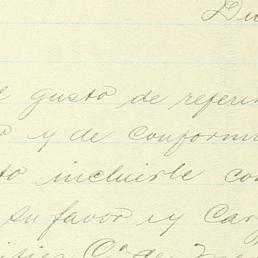 Du
l gusto de referi
o y de conform
to incluirle con
su favor y Carg
Cª de